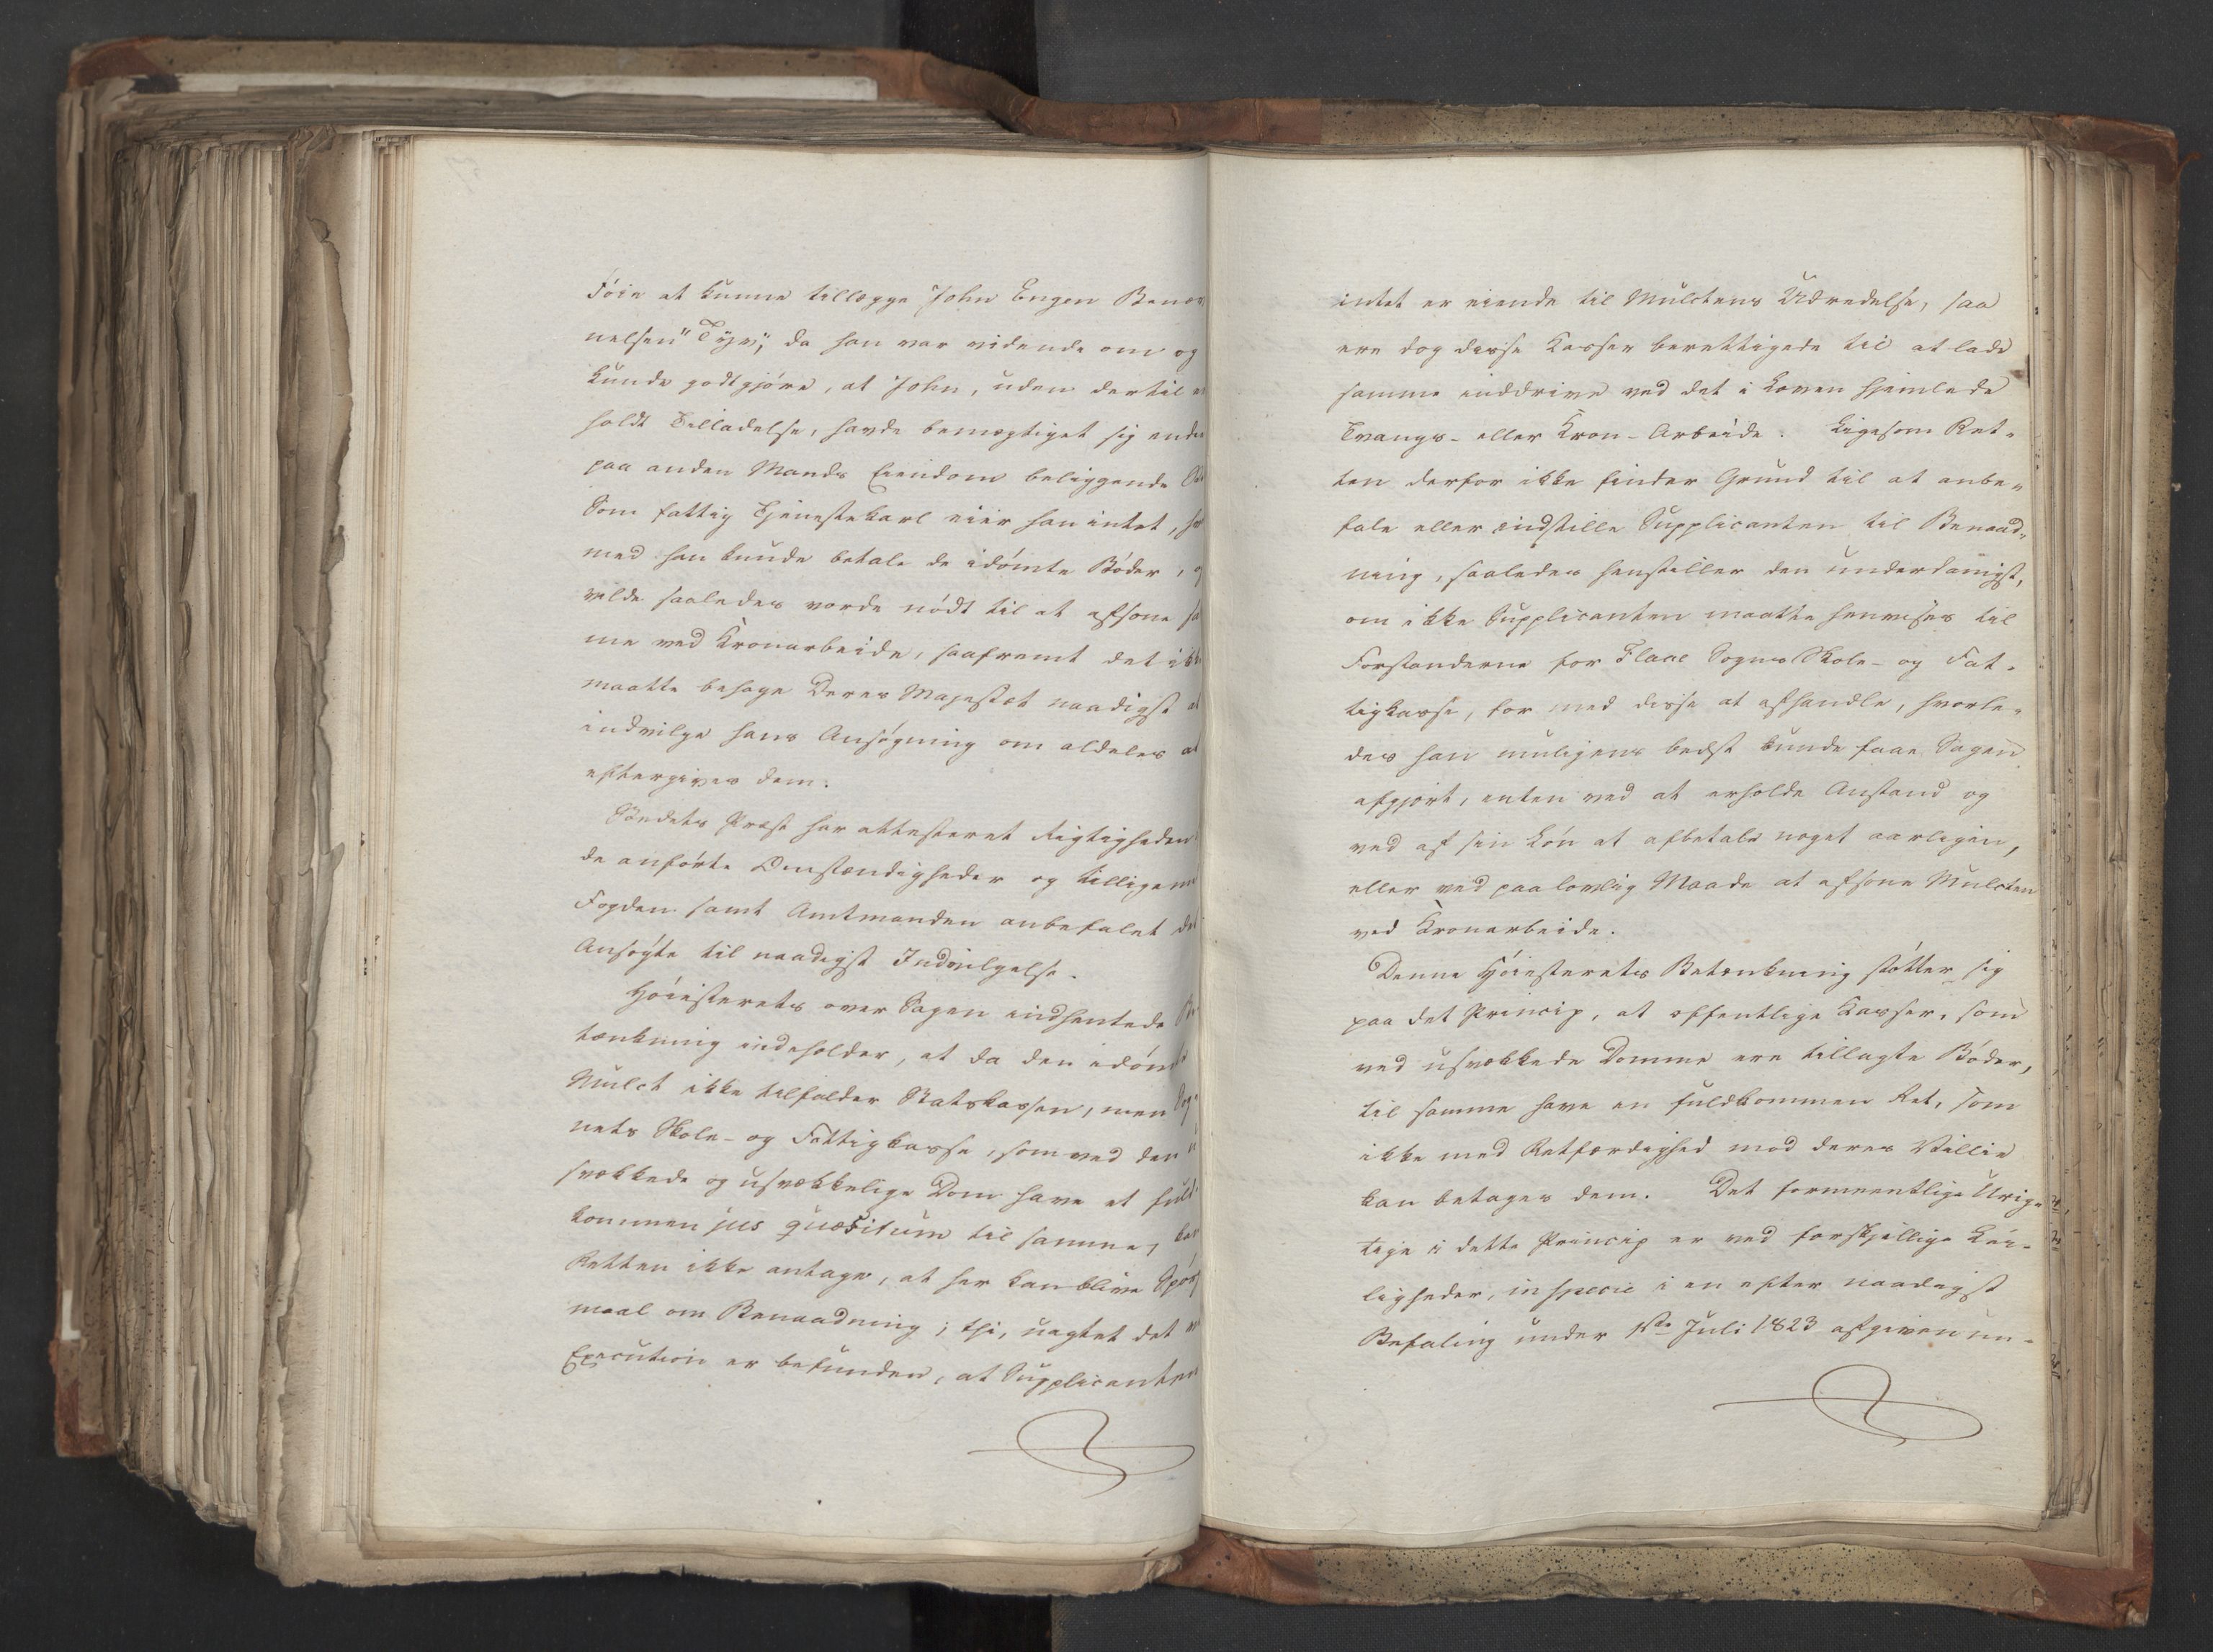 Föie at kunne tillægge John Engen Benæv
nelsen "Tyv", da han var vidende om og
kunde godtgjöre, at John, uden dertil er
holdt Tilladelse, havde bemægtiget sig andet
paa anden Mands Eiendom beliggende
Som fattig Tjenestekarl eier han intet, hvor
med han kunde betale de idömte Böder, og
vilde saaledes vorde nödt til at afsone sam
me ved Kronarbeide, saafremt det ikke
maatte behage Deres Majestæt naadigst at
indvilge hans Ansögning om aldeles at
eftergives dem.
Stedets Præst har attesteret Rigtigheden
de anförte Omstændigheder og tilligemed
Fogden samt Amtmanden anbefalet det
Ansögte til naadigst Indvilgelse.
Höiesterets over Sagen indhentede Be
tænkning indeholder, at da den idömte
Mulct ikke tilfalder Statskassen, men Sog-
nets Skole- og Fattigkasse, som ved den u
svækkede og usvækkelige Dom have et fuld-
kommen jus quæsitum til samme, kan
Retten ikke antage, at her kan blive Spörgs
maal om Benaadning; thi, uagtet det ved
Execution er befunden, at Supplicanten
intet er eiende til Mulctens Udredelse, saa
ere dog disse Kasser berettigede til at lade
samme inddrive ved det i Loven hjemlede
Tvangs- eller Kron-Arbeide. Ligesom Ret-
ten derfor ikke finder Grund til at anbe-
fale eller indstille Supplicanten til Benaad-
ning, saaledes henstiller den underdanigst,
om ikke Supplicanten maatte henvises til
Forstanderne for Flaae Sogns Skole- og Fat-
tigkasse, for med disse at afhandle, hvorle-
des han muligens bedst kunde faae Sagen
afgjort, enten ved at erholde Anstand og
ved af sin Lön at afbetale noget aarligen,
eller ved paa lovlig Maade at afsone Mulcten
ved Kronarbeide.
Denne Höiesterets Betænkning stötter sig
paa det Princip, at offentlige Kasser, som
ved usvækkede Domme ere tillagte Böder,
til samme have en fuldkommen Ret, som
ikke med Retfærdighed mod deres Villie
kan betages dem. Det formeentlige Urig-
tige i dette Princip er ved forskjellige Lei-
ligheder, in specie i en efter naadigst
Befaling under 1ste Juli 1823 afgiven un-